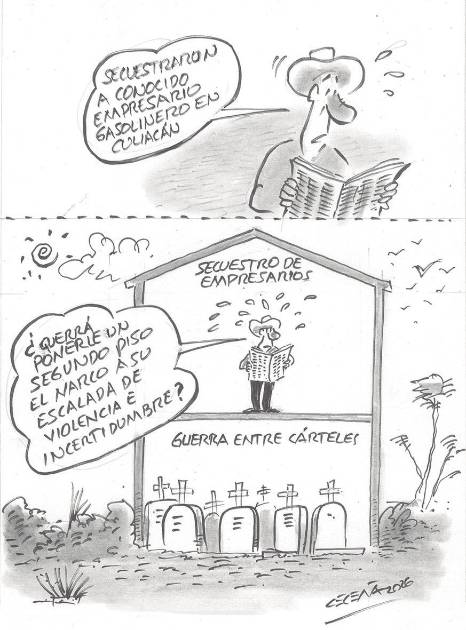 SECUESTRARON
A CONOCIDO
EMPRESARIO
GASOLINERO EN
CULIACÁN
SECUESTRO DE
EMPRESARIOS
¿QUERRÁ
PONERLE UN
SEGUNDO PISO
EL NARCO A SU
ESCALADA DE
VIOLENCIA E
INCERTIDUMBRE?
GUERRA ENTRE CÁRTELES
CECEÑA 2026